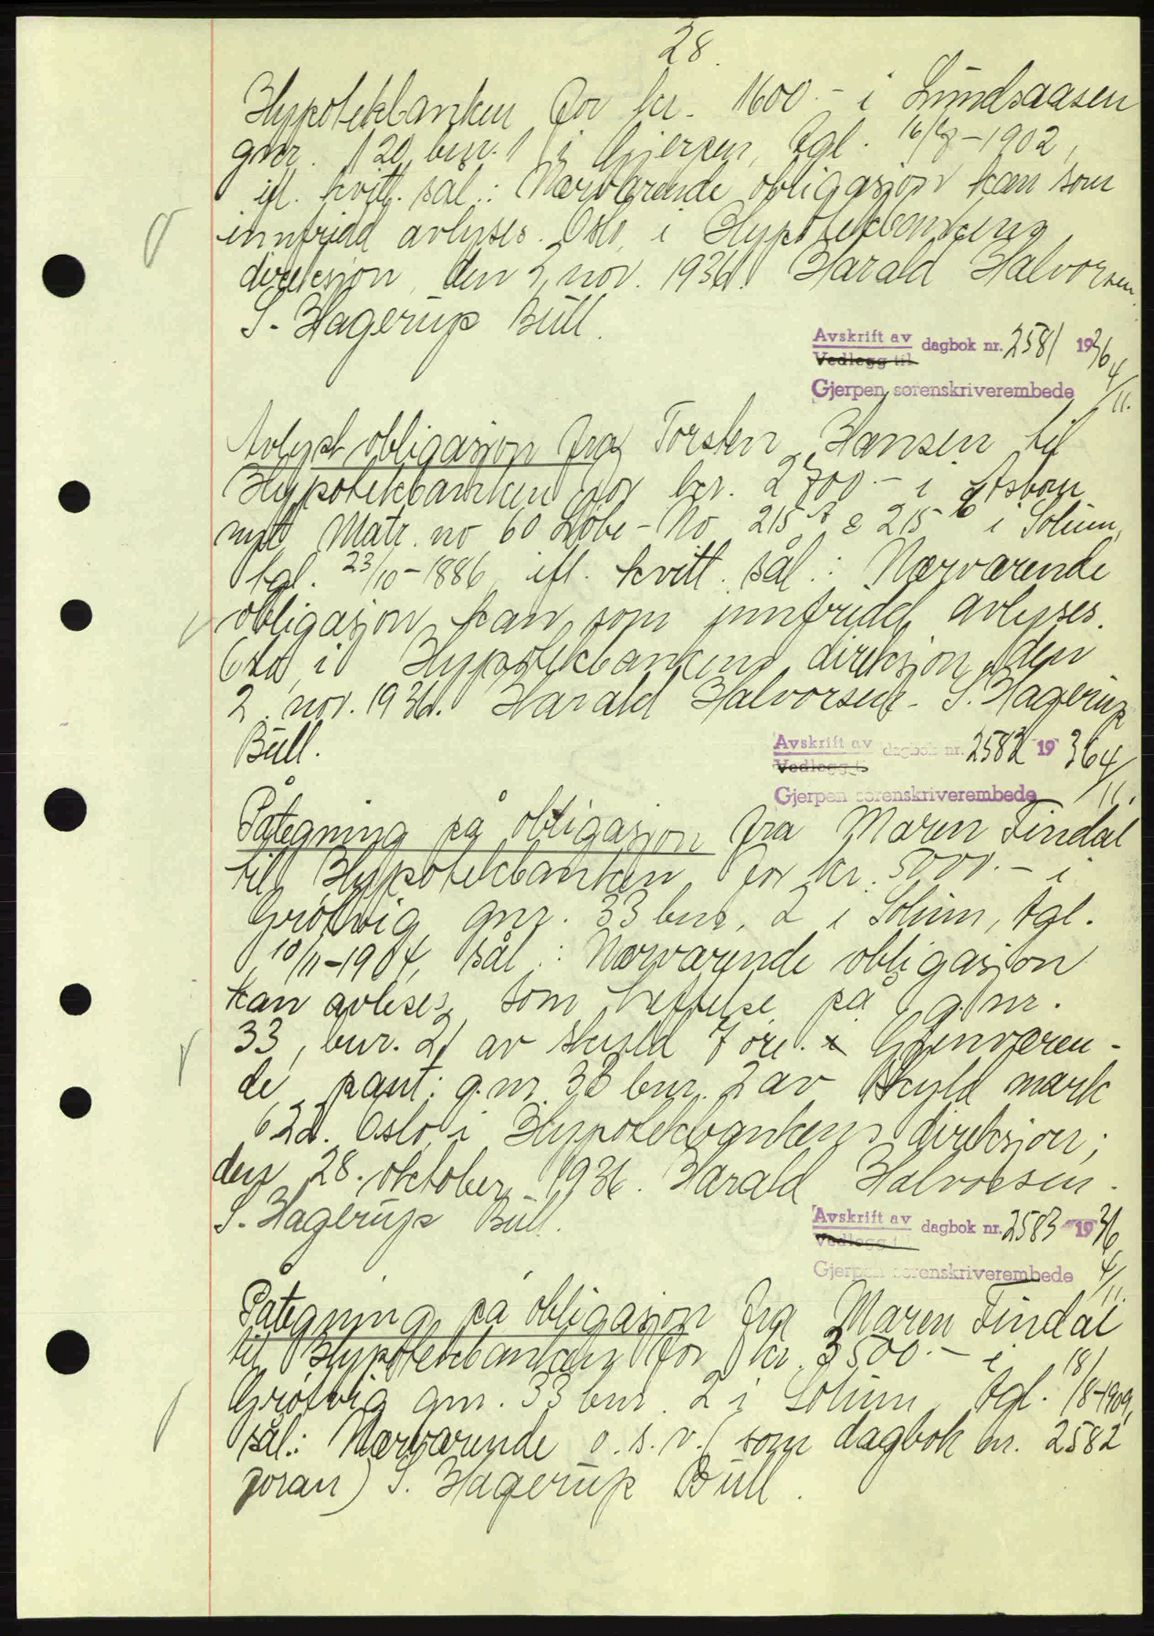 28.
Hypotekbanken for kr. 1600.- i Lundsaasen
gnr. 120 bnr. 1 i Gjerpen, tgl. 16/8-1902,
ifl. kvitt. sål.: Nærværende obligasjon kan som
innfridd avlyses. Oslo, i Hypotekbankens
direksjon, den 2. nov. 1936. Harald Halvorsen.
S. Hagerup Bull.
Avskrift av dagbok nr. 2581 1936
Vedlegg til 4/11.
Gjerpen sorenskriverembede
Avlyst obligasjon fra Torsten Hansen til
Hypotekbanken for kr. 2700.- i
nytt Matr. no 60 Løbe-No 215 & 215 b i Solum,
tgl. 23/10-1886, ifl. kvitt. sål.: Nærværende
obligasjon kan som innfridd avlyses.
Oslo, i Hypotekbankens direksjon, den
2. nov. 1936. Harald Halvorsen. S. Hagerup
Bull.
Avskrift av dagbok nr. 2582 1936 4/11.
Vedlegg til
Gjerpen sorenskriverembede
Påtegning på obligasjon fra Maren Findal
til Hypotekbanken for kr. 5000.- i
gnr. 33 bnr. 2 i Solum, tgl.
10/11-1904, sål.: Nærværende obligasjon
kan avleses som heftelse på g.nr.
33, bnr. 21 av skyld 7 øre. Gjenværen-
de pant: g.nr. 33 bnr. 2 av skyld mark
6 22. Oslo, i Hypotekbankens direksjon;
den 28. oktober 1936. Harald Halvorsen.
S. Hagerup Bull.
Avskrift av dagbok nr. 2583 1936
Vedlegg til 4/11.
Gjerpen sorenskriverembede
Påtegning på obligasjon fra Maren Findal
til Hypotekbanken for kr. 3500.- i
gnr. 33 bnr. 2 i Solum, tgl. 18/8-1909,
sål.: Nærværende o.s.v. (som dagbok nr. 2582
foran) S. Hagerup Bull.